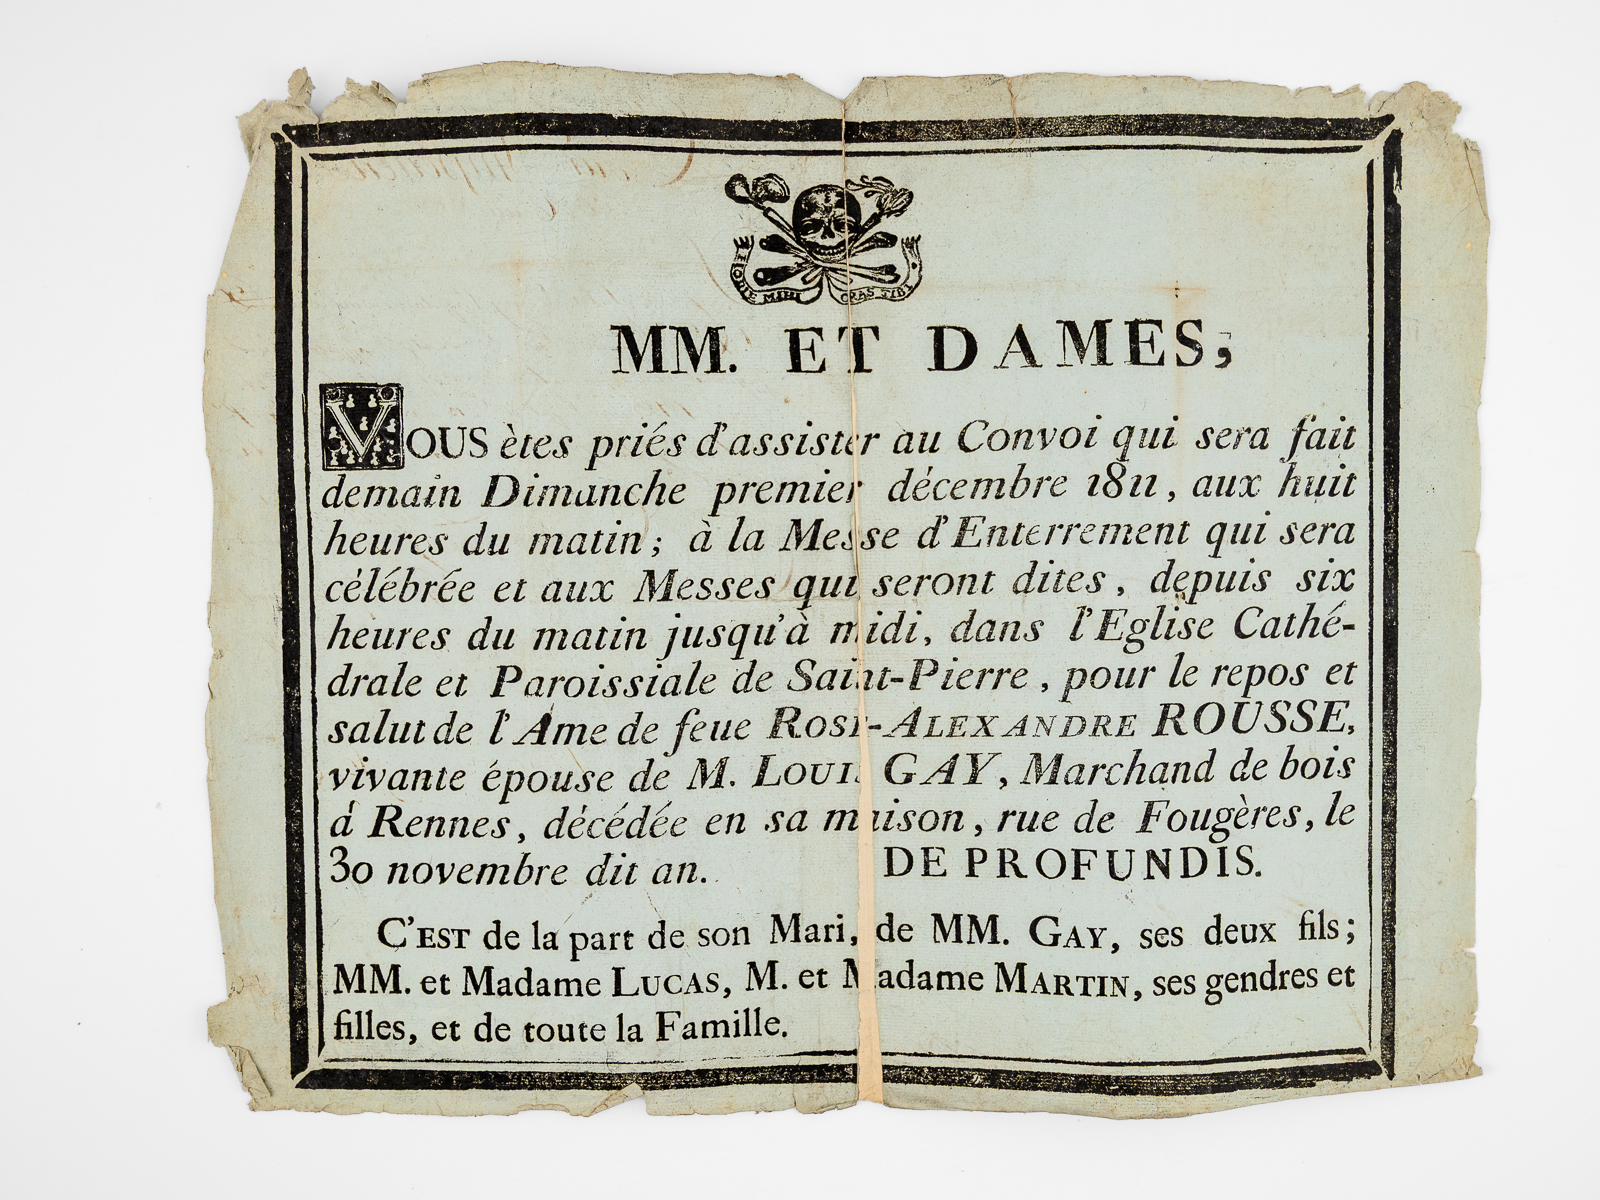 HODIE MIHI CRAS TIBI
MM. ET DAMES,
VOUS ètes priés d'assister au Convoi qui sera fait
demain Dimanche premier décembre 1811, aux huit
heures du matin; à la Messe d'Enterrement qui sera
célébrée et aux Messes qui seront dites, depuis six
heures du matin jusqu'à midi, dans l'Eglise Cathé-
drale et Paroissiale de Saint-Pierre, pour le repos et
salut de l'Ame de feue ROSE-ALEXANDRE ROUSSE,
vivante épouse de M. LOUIS GAY, Marchand de bois
à Rennes, décédée en sa maison, rue de Fougères, le
30 novembre dit an. DE PROFUNDIS.
C'EST de la part de son Mari, de MM. GAY, ses deux fils;
MM. et Madame LUCAS, M. et Madame MARTIN, ses gendres et
filles, et de toute la Famille.